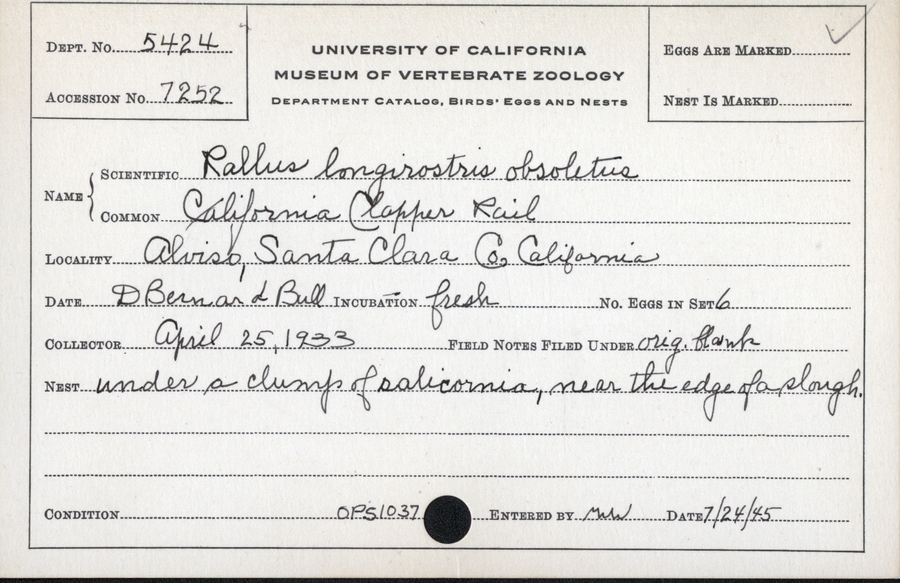 DEPT. No. 5424
ACCESSION No. 7252
UNIVERSITY OF CALIFORNIA
MUSEUM OF VERTEBRATE ZOOLOGY
DEPARTMENT CATALOG, BIRDS' EGGS AND NESTS
EGGS ARE MARKED
NEST IS MARKED
NAME
SCIENTIFIC Rallus longirostris obsoletus
COMMON California Clapper Rail
LOCALITY Alviso, Santa Clara Co. California
DATE D Bernard Bull INCUBATION fresh No. EGGS IN SET 6
COLLECTOR April 25, 1933 FIELD NOTES FILED UNDER orig. blank
NEST under a clump of salicornia, near the edge of a slough.
CONDITION OPS1037 ENTERED BY DATE 7/24/45